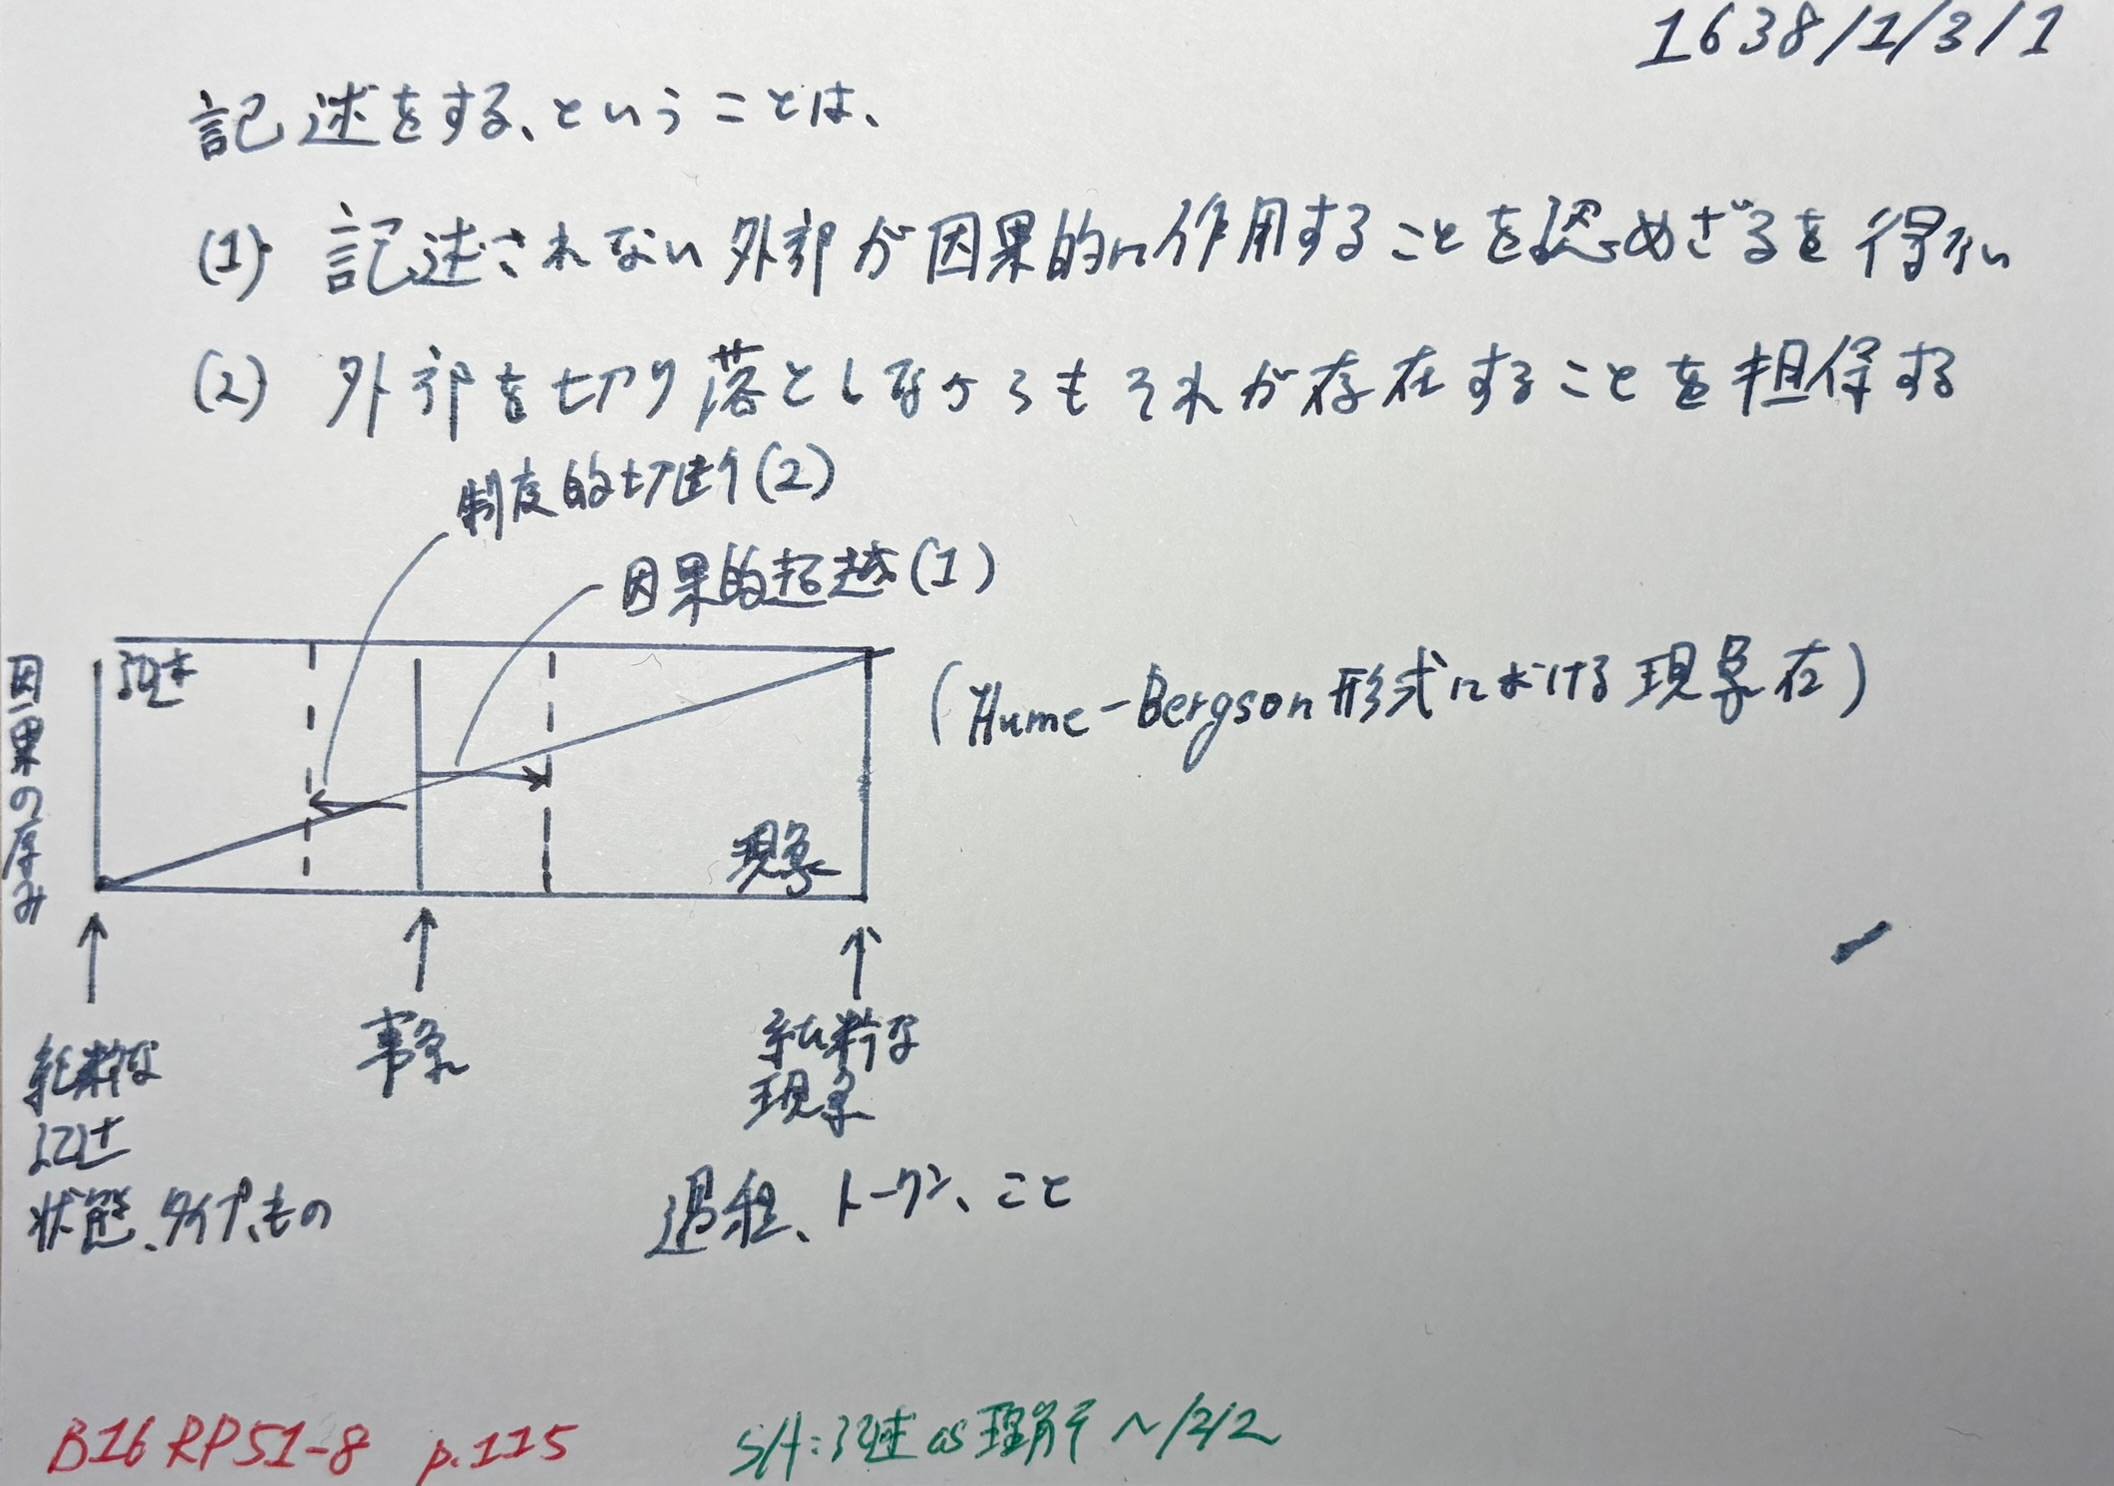 1638/1/3/1
記述をする、ということは、
(1) 記述されない外部が因果的に作用することを認めざるを得ない
(2) 外部を切り落としながらもそれが存在することを担保する
制度的切断(2)
因果的超越(1)
(Hume-Bergson形式における現象在)
因果の厚み
記述
現象
純粋な
記述
状態、タイプ、もの
事象
純粋な
現象
過程、トークン、こと
B16 RP51-8 p.115
S/A:記述 as 理解 〜/2/2